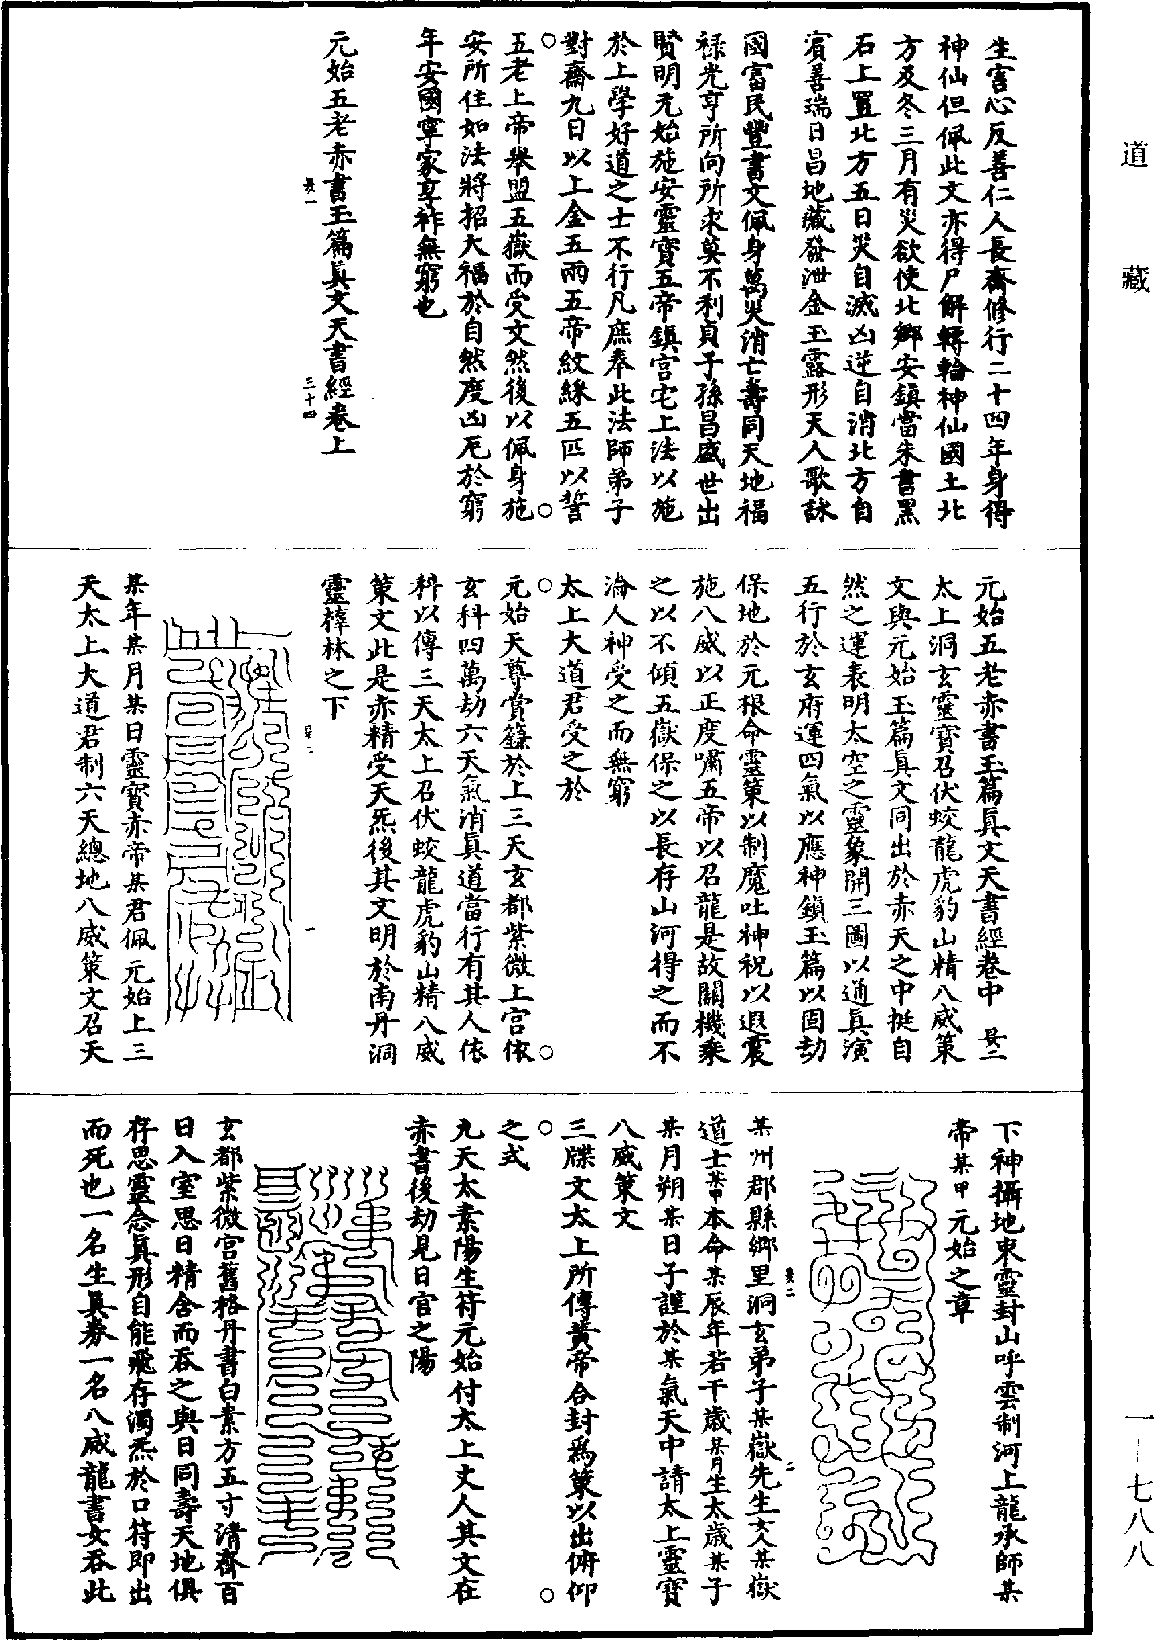 道藏
生害心反善仁人長齋修行二十四年身得
神仙但佩此文亦得尸解轉輪神仙國土北
方及冬三月有災欲使北鄉安鎮當朱書黑
石上置北方五日災自滅凶逆自消北方自
賓善瑞日昌地藏發泄金玉露形天人歌詠
國富民豐書文佩身萬災消亡壽同天地福
祿光亨所向所求莫不利貞子孫昌盛世出
賢明元始施安靈寶五帝鎮宮宅上法以施
於上學好道之士不行凡庶奉此法師弟子
對齋九日以上金五兩五帝紋繒五匹以誓
五老上帝舉盟五嶽而受文然後以佩身施
安所住如法將招大福於自然度凶厄於窮
年安國寧家享祚無窮也
元始五老赤書玉篇真文天書經卷上
三十四
元始五老赤書玉篇真文天書經卷中
太上洞玄靈寶召伏蛟龍虎豹山精八威策
文與元始玉篇真文同出於赤天之中挺自
然之運表明太空之靈象開三圖以通真演
五行於玄府運四氣以應神鎮玉篇以固劫
保地於元根命靈策以制魔吐神祝以遐震
施八威以正度嘯五帝以召龍是故關機乘
之以不傾五嶽保之以長存山河得之而不
淪人神受之而無窮
太上大道君受之於
元始天尊賞籙於上三天玄都紫微上宮依
玄科四萬劫六天氣消真道當行有其人依
科以傳三天太上召伏蛟龍虎豹山精八威
策文此是赤精受天炁後其文明於南丹洞
靈梓林之下
一
某年某月某日靈寶赤帝某君佩元始上三
天太上大道君制六天總地八威策文召天
下神攝地束靈封山呼雲制河上龍承師某
帝某甲元始之章
某州郡縣鄉里洞玄弟子某嶽先生女人某嶽
二
道士某甲本命某辰年若干歲某月生太歲某子
某月朔某日子謹於某氣天中請太上靈寶
八威策文
三牒文太上所傳黃帝合封為策以出俯仰
之式
九天太素陽生符元始付太上丈人其文在
赤書後劫見日官之陽
玄都紫微宮舊格丹書白素方五寸清齋百
日入室思日精含而吞之與日同壽天地俱
存思靈念真形自能飛存濁炁於口符即出
而死也一名生真券一名八威龍書女吞此
一—七八八